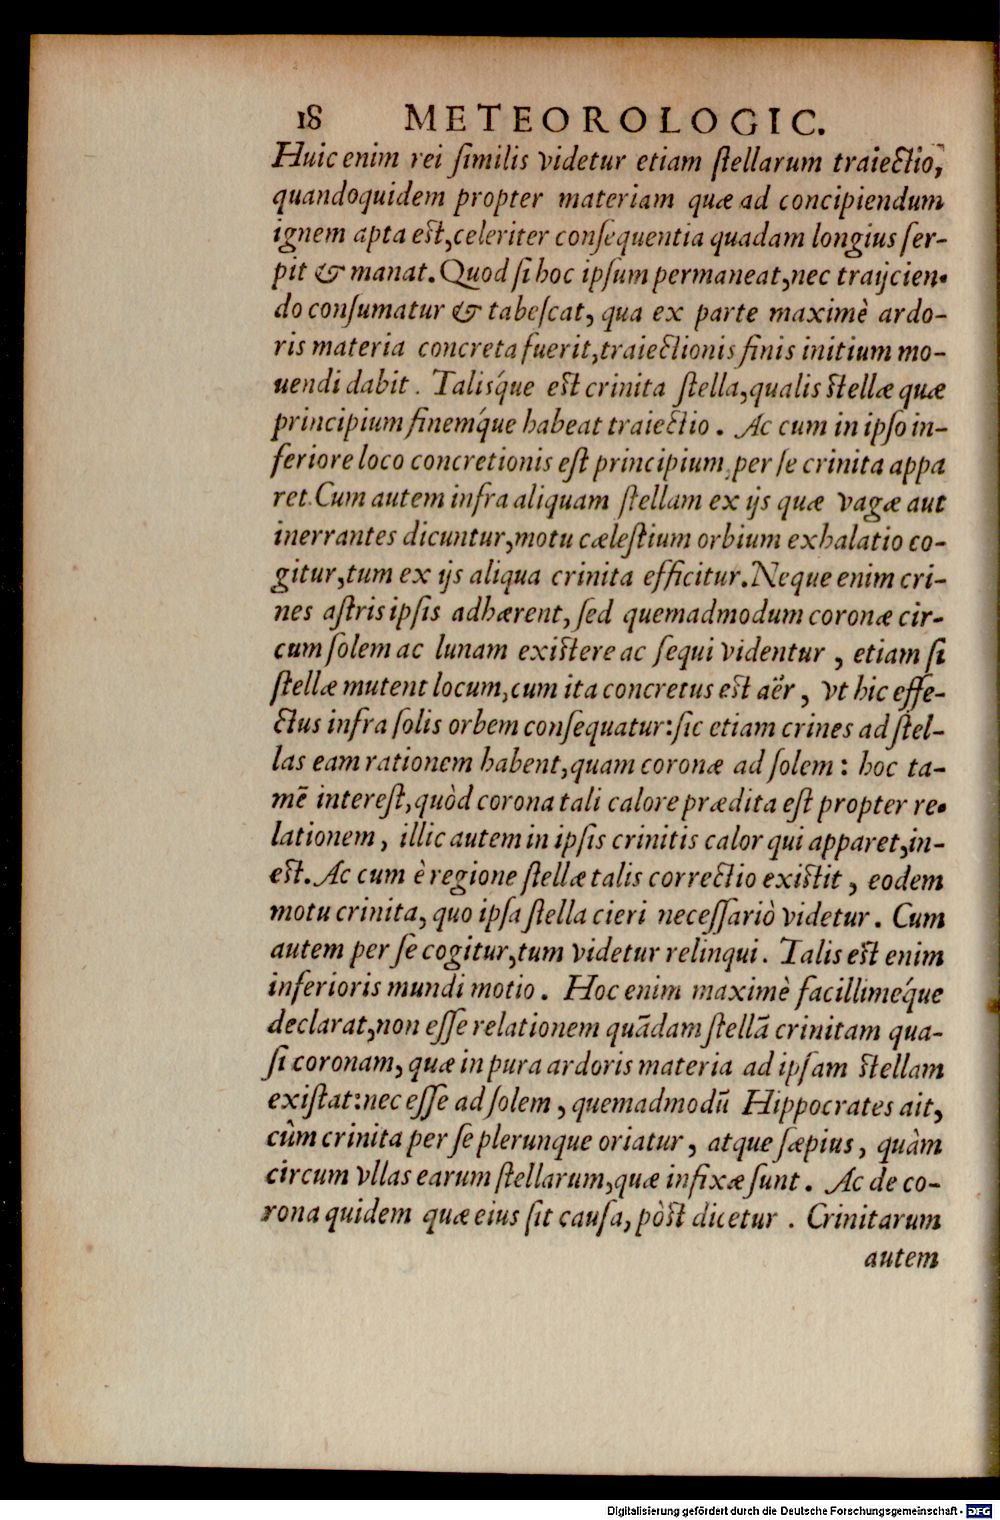 18 METEOROLOGIC.
Huic enim rei ſimilis videtur etiam ſtellarum traiectio,
quandoquidem propter materiam quæ ad concipiendum
ignem apta est, celeriter conſequentia quadam longius ſer-
pit & manat. Quod ſi hoc ipſum permaneat, nec traijcien-
do conſumatur & tabeſcat, qua ex parte maximè ardo-
ris materia concreta fuerit, traiectionis finis initium mo-
uendi dabit. Talisq́ue est crinita ſtella, qualis stellæ quæ
principium finemq́ue habeat traiectio. Ac cum in ipſo in-
feriore loco concretionis eſt principium, per ſe crinita appa
ret. Cum autem infra aliquam ſtellam ex ijs quæ vagæ aut
inerrantes dicuntur, motu cæleſtium orbium exhalatio co-
gitur, tum ex ijs aliqua crinita efficitur. Neque enim cri-
nes aſtris ipſis adhærent, ſed quemadmodum coronæ cir-
cum ſolem ac lunam existere ac ſequi videntur, etiam ſi
ſtellæ mutent locum, cum ita concretus est aër, vt hic effe-
ctus infra ſolis orbem conſequatur: ſic etiam crines ad ſtel-
las eam rationem habent, quam coronæ ad ſolem: hoc ta-
mē intereſt, quòd corona tali calore prædita eſt propter re-
lationem, illic autem in ipſis crinitis calor qui apparet, in-
est. Ac cum è regione ſtellæ talis correctio existit, eodem
motu crinita, quo ipſa ſtella cieri neceſſariò videtur. Cum
autem per ſe cogitur, tum videtur relinqui. Talis est enim
inferioris mundi motio. Hoc enim maximè facillimeq́ue
declarat, non eſſe relationem quādam ſtellā crinitam qua-
ſi coronam, quæ in pura ardoris materia ad ipſam stellam
exiſtat: nec eſſe ad ſolem, quemadmodū Hippocrates ait,
cûm crinita per ſe plerunque oriatur, atque ſæpius, quàm
circum vllas earum ſtellarum, quæ infixæ ſunt. Ac de co-
rona quidem quæ eius ſit cauſa, pòst dicetur. Crinitarum
autem
Digitalisierung gefördert durch die Deutsche Forschungsgemeinschaft - DFG